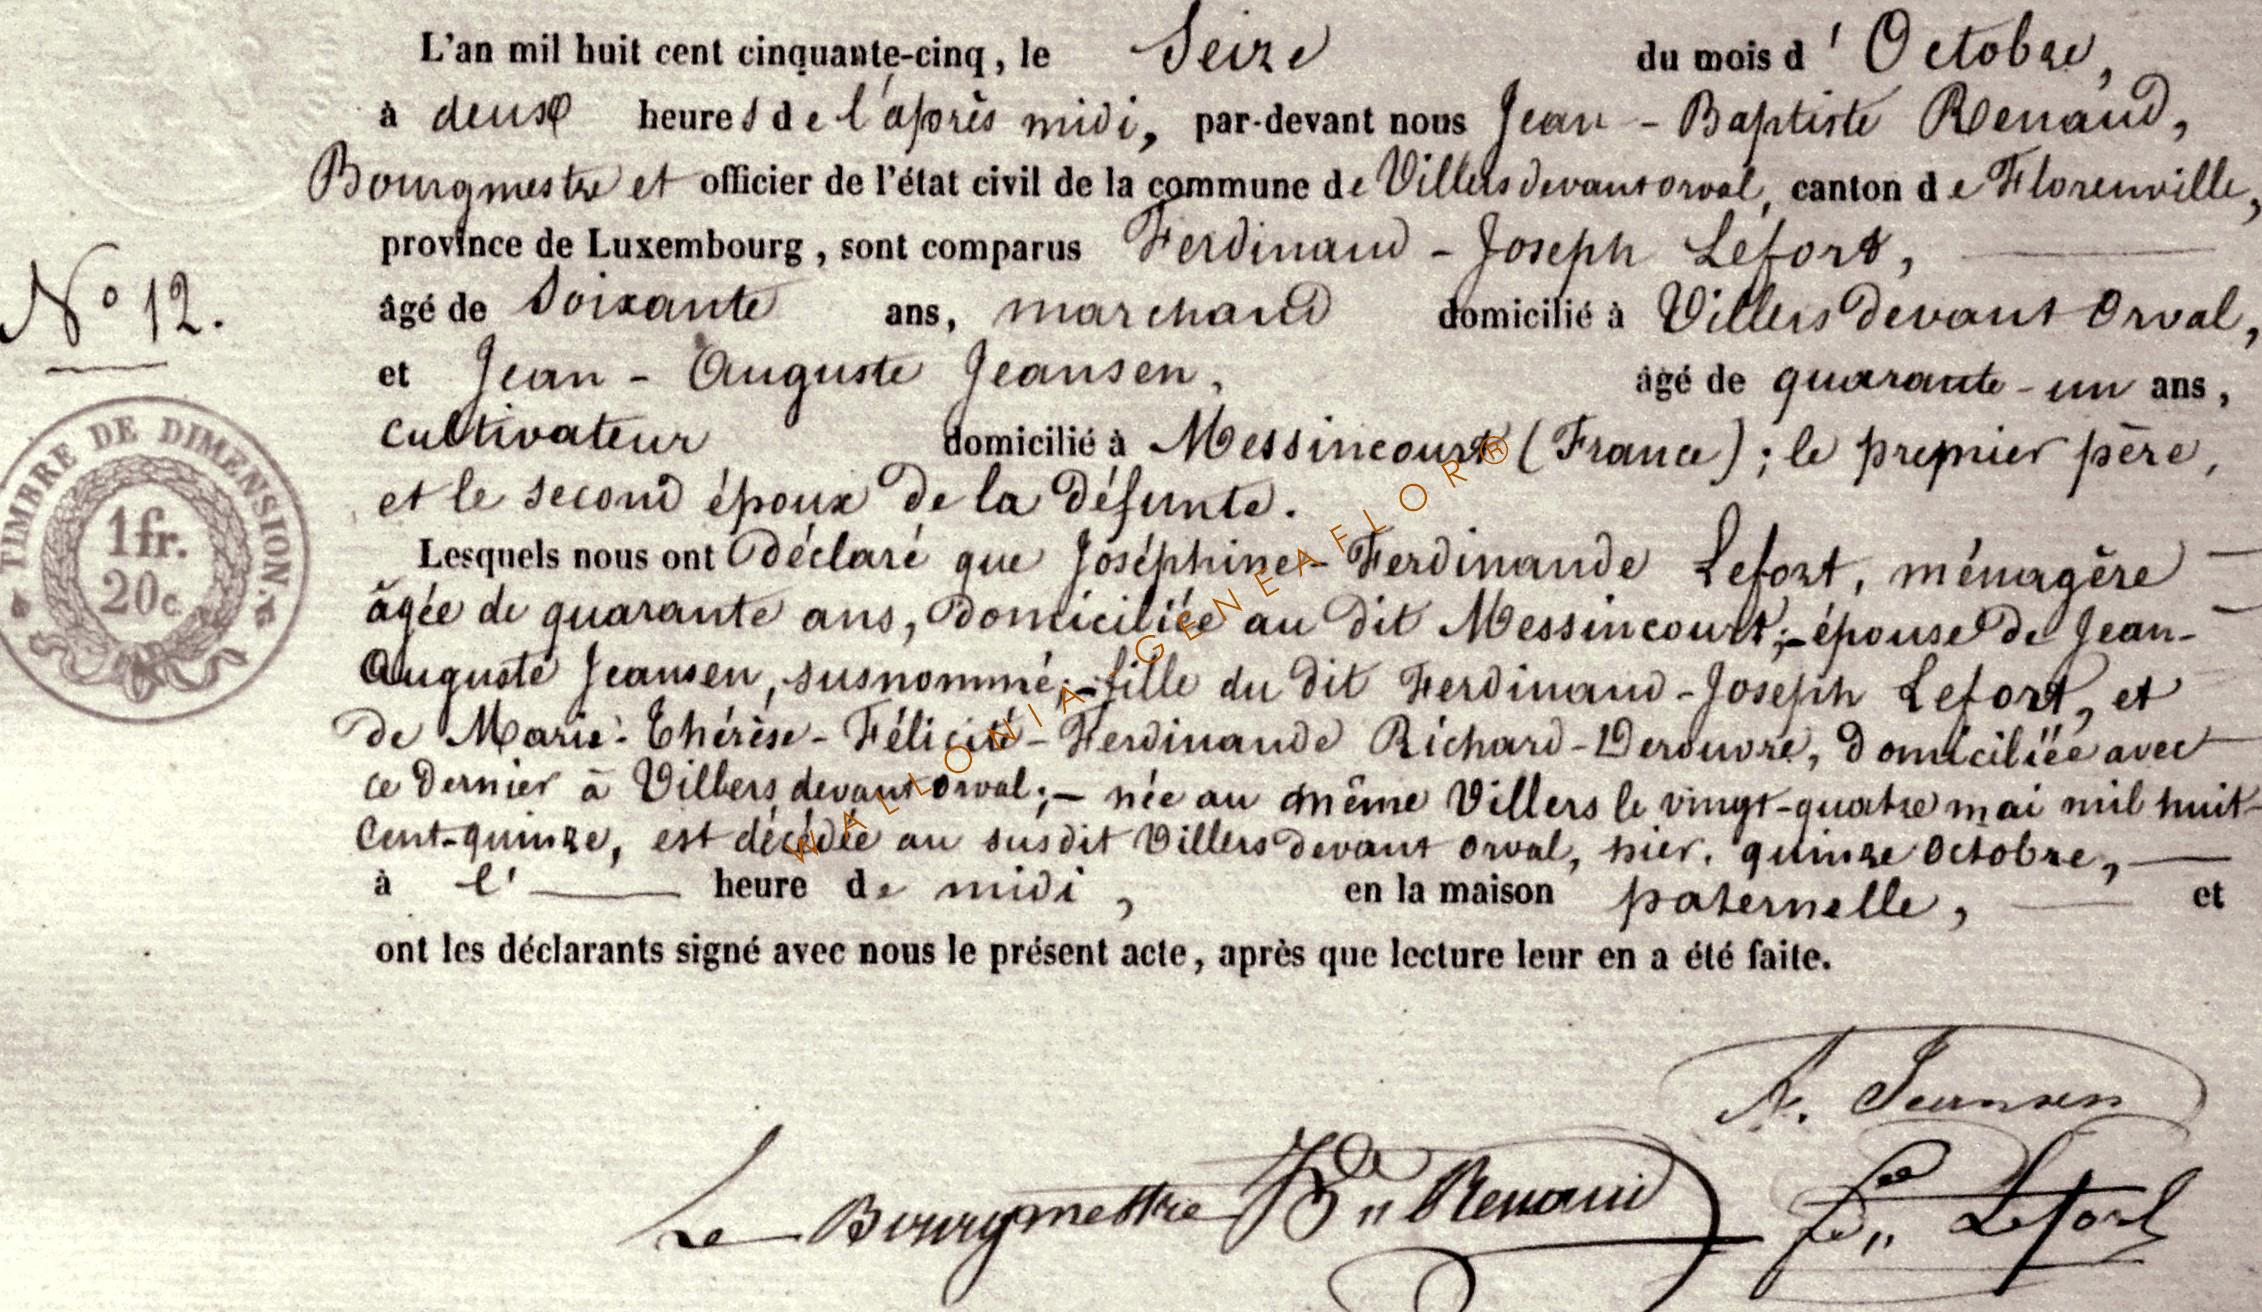 L'an mil huit cent cinquante-cinq, le Seize du mois d'Octobre,
à deux heures de l'après midi, par-devant nous Jean-Baptiste Renaud,
Bourgmestre et officier de l'état civil de la commune de Villers devant orval, canton de Florenville,
province de Luxembourg, sont comparus Ferdinand-Joseph Lefort,
N° 12.
âgé de Soixante ans, marchand domicilié à Villers devant Orval,
et Jean-Auguste Jeansen, âgé de quarante-un ans,
cultivateur domicilié à Messincourt (France); le premier père,
et le second époux de la défunte.
TIMBRE DE DIMENSION.
1fr.
20c
Lesquels nous ont déclaré que Joséphine-Ferdinande Lefort, ménagère
âgée de quarante ans, domiciliée au dit Messincourt;- épouse de Jean-
Auguste Jeansen, susnommé;- fille du dit Ferdinand-Joseph Lefort, et
de Marie-Thérèse-Félicité-Ferdinande Richard-Derouvre, domiciliée avec
ce dernier à Villers devant orval;- née au même Villers le vingt-quatre mai mil huit-
Cent-quinze, est décédée au susdit Villers devant orval, hier, quinze Octobre,
à l' heure de midi, en la maison paternelle, et
ont les déclarants signé avec nous le présent acte, après que lecture leur en a été faite.
WALLONIA-GENEAFLOR®
A. Jeansen
Le Bourgmestre Renaud
Lefort